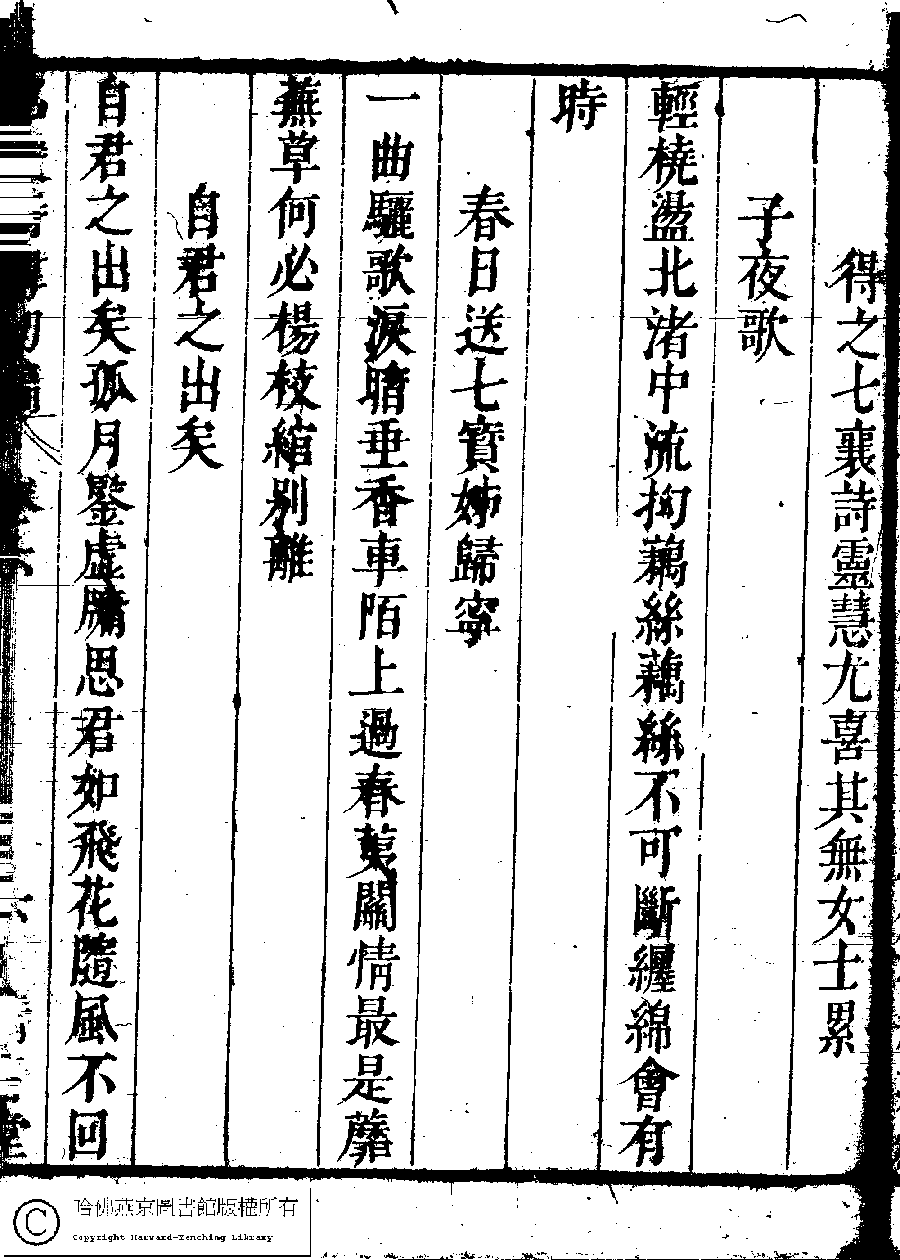 得之七襄詩靈慧尤喜其無女士累
子夜歌
輕橈盪北渚中流拘藕絲藕絲不可斷纏綿會有
時
春日送七寶姊歸寧
一曲驪歌淚暗垂香車陌上過春荑關情最是蘼
蕪草何必楊枝綰别離
自君之出矣
自君之出矣孤月鑒虛牖思君如飛花隨風不回
哈佛燕京圖書館版權所有
Copyright Harvard-Yenching Library